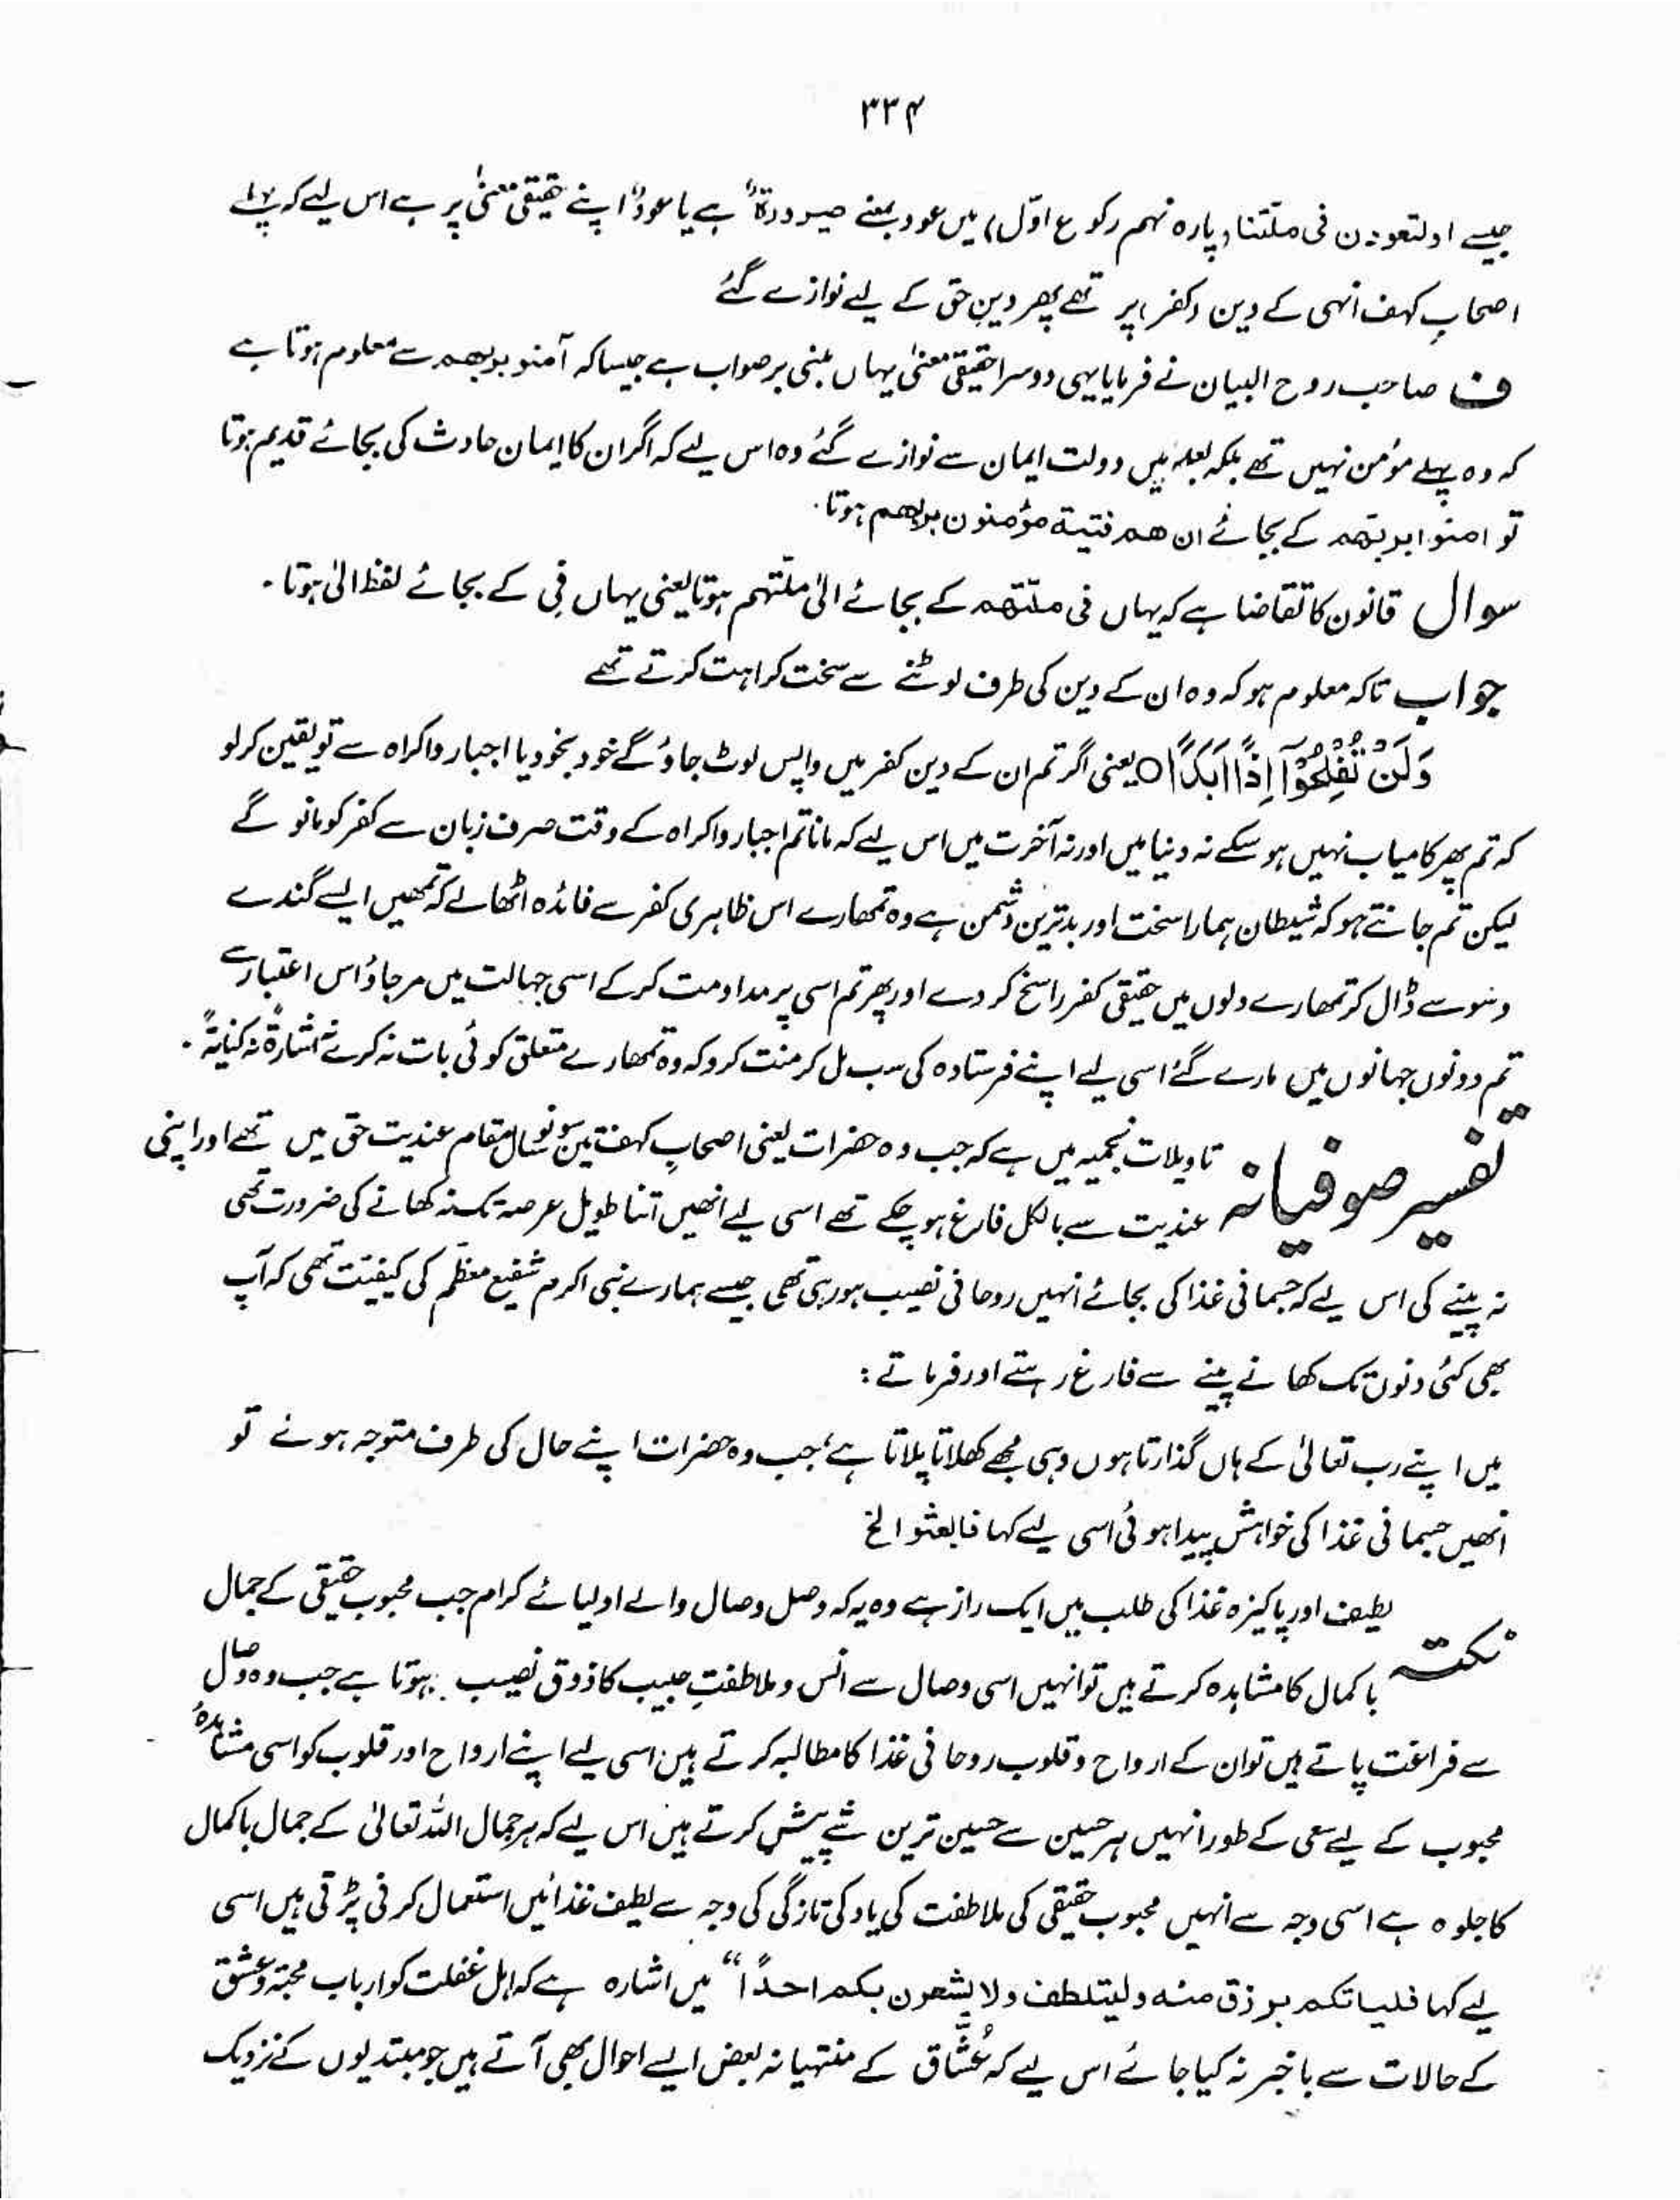 ۳۳۴
جیسے اولتعودن فی ملّتنا (پارہ نہم رکوع اوّل) میں عود بمعنے صیرورۃ" ہے یا عود" اپنے حقیقی معنیٰ پر ہے اس لیے کہ پہلے
اصحابِ کہف انہی کے دین (کفر) پر تھے پھر دینِ حق کے لیے نوازے گئے
ف صاحب روح البیان نے فرمایا یہی دوسرا حقیقی معنیٰ یہاں مبنی بر صواب ہے جیسا کہ آمنو بربھم سے معلوم ہوتا ہے
کہ وہ پہلے مؤمن نہیں تھے بلکہ بعد میں دولت ایمان سے نوازے گئے وہ اس لیے کہ اگر ان کا ایمان حادث کی بجائے قدیم ہوتا
تو امنوا بربّھم کے بجائے ان ھم فتیۃ مؤمنون بربھم ہوتا۔
سوال قانون کا تقاضا ہے کہ یہاں فی ملتھم کے بجائے الیٰ ملّتہم ہوتا یعنی یہاں فِی کے بجائے لفظ الیٰ ہوتا۔
جواب تاکہ معلوم ہو کہ وہ ان کے دین کی طرف لوٹنے سے سخت کراہت کرتے تھے
وَلَنْ تُفْلِحُوْٓا اِذًا اَبَدًا ○ یعنی اگر تم ان کے دین کفر میں واپس لوٹ جاؤ گے خود بخود یا اجبار و اکراہ سے تو یقین کر لو
کہ تم پھر کامیاب نہیں ہو سکے نہ دنیا میں اور نہ آخرت میں اس لیے کہ مانا تم اجبار و اکراہ کے وقت صرف زبان سے کفر کو مانو گے
لیکن تم جانتے ہو کہ شیطان ہمارا سخت اور بدترین دشمن ہے وہ تمھارے اس ظاہری کفر سے فائدہ اٹھا لے کہ تمھیں ایسے گندے
وسوسے ڈال کر تمھارے دلوں میں حقیقی کفر راسخ کر دے اور پھر تم اسی پر مداومت کر کے اسی جہالت میں مر جاؤ اس اعتبار سے
تم دونوں جہانوں میں مارے گئے اسی لیے اپنے فرستادہ کی سب مل کر منت کرو کہ وہ تمھارے متعلق کوئی بات نہ کرے نہ اشارۃً نہ کنایۃً۔
تفسیر صوفیانہ تاویلات نجمیہ میں ہے کہ جب وہ حضرات یعنی اصحابِ کہف تین سو نو سال مقام عندیت حق میں تھے اور اپنی
عندیت سے بالکل فارغ ہو چکے تھے اسی لیے انھیں اتنا طویل عرصہ تک نہ کھانے کی ضرورت تھی
نہ پینے کی اس لیے کہ جسمانی غذا کی بجائے انہیں روحانی نصیب ہو رہی تھی جیسے ہمارے نبی اکرم شفیع معظّم کی کیفیّت تھی کہ آپ
بھی کئی دنوں تک کھانے پینے سے فارغ رہتے اور فرماتے:
میں اپنے رب تعالیٰ کے ہاں گذارتا ہوں وہی مجھے کھلاتا پلاتا ہے، جب وہ حضرات اپنے حال کی طرف متوجہ ہوئے تو
انھیں جسمانی غذا کی خواہش پیدا ہوئی اسی لیے کہا فابعثوا الخ
نکتہ لطیف اور پاکیزہ غذا کی طلب میں ایک راز ہے وہ یہ کہ وصل وصال والے اولیائے کرام جب محبوب حقیقی کے جمال
با کمال کا مشاہدہ کرتے ہیں تو انہیں اسی وصال سے انس و ملاطفتِ حبیب کا ذوق نصیب ہوتا ہے جب وہ وصال
سے فراغت پاتے ہیں تو ان کے ارواح و قلوب روحانی غذا کا مطالبہ کرتے ہیں، اسی لیے اپنے ارواح اور قلوب کو اسی مشاہدۂ
محبوب کے لیے سعی کے طور انہیں ہر حسین سے حسین ترین شے پیش کرتے ہیں اس لیے کہ ہر جمال اللہ تعالیٰ کے جمال با کمال
کا جلوہ ہے اسی وجہ سے انہیں محبوب حقیقی کی ملاطفت کی یاد کی تازگی کی وجہ سے لطیف غذائیں استعمال کرنی پڑتی ہیں اسی
لیے کہا فلیاتکم برزق منہ ولیتلطف ولا یشعرن بکم احدًا" میں اشارہ ہے کہ اہل غفلت کو ارباب محبۃ و عشق
کے حالات سے باخبر نہ کیا جائے اس لیے کہ عُشّاق کے منتہیانہ بعض ایسے احوال بھی آتے ہیں جو مبتدیوں کے نزدیک